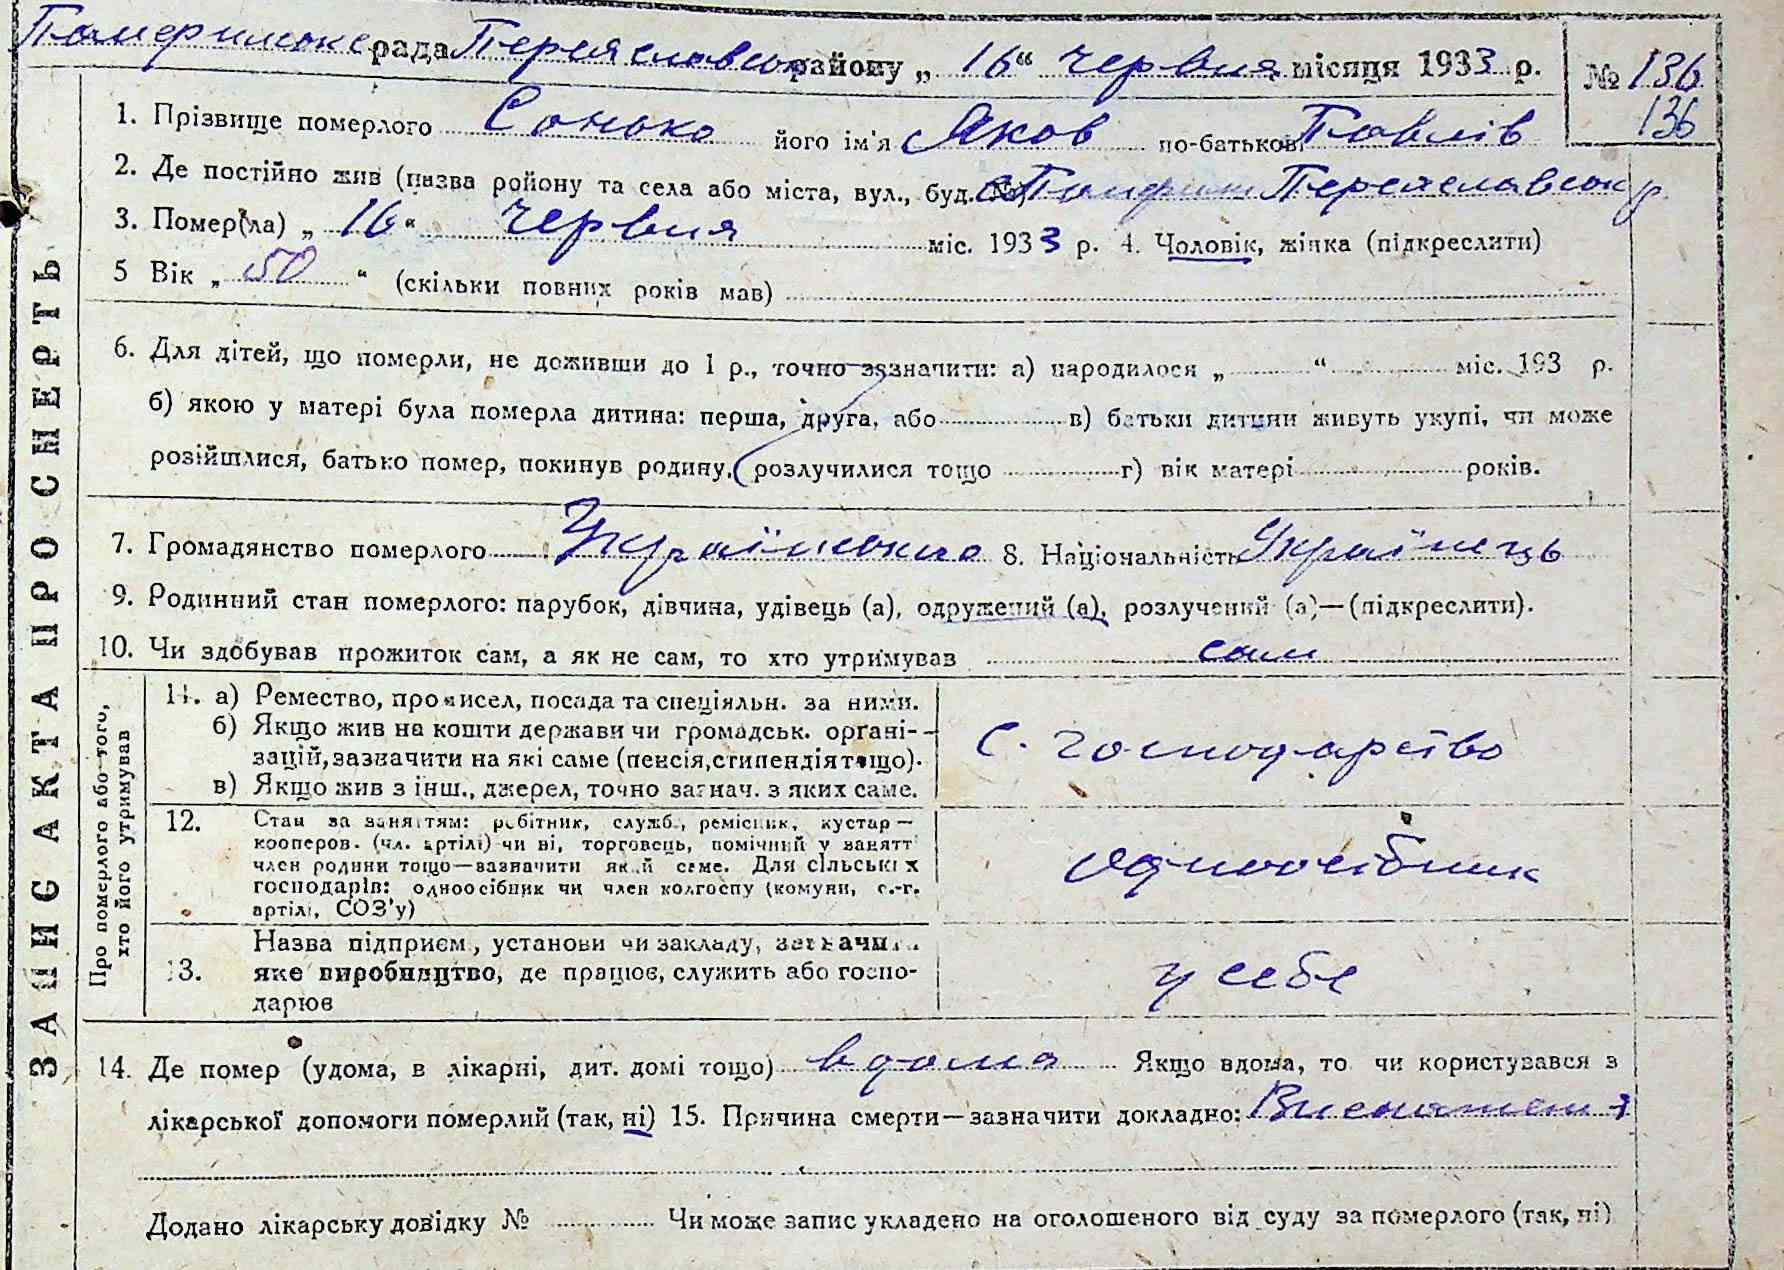 Помфилське рада Переяславськ району „ 16 “ червня місяця 1933 р. № 136
136
1. Прізвище померлого Сонько його ім'я Яков по-батькові Павлів
2. Де постійно жив (назва району та села або міста, вул., буд. №) Переяславськ р.
3. Помер(ла) „ 16 “ червня міс. 1933 р. 4. Чоловік, жінка (підкреслити)
5 Вік „ 50 “ (скільки повних років мав)
6. Для дітей, що померли, не доживши до 1 р., точно зазначити: а) народилося „ “ міс. 193 р.
б) якою у матері була померла дитина: перша, друга, або в) батьки дитини живуть укупі, чи може
розійшлися, батько помер, покинув родину, розлучилися тощо г) вік матері років.
7. Громадянство померлого Українського 8. Національність Українець
9. Родинний стан померлого: парубок, дівчина, удівець (а), одружений (а), розлучений (а)—(підкреслити).
10. Чи здобував прожиток сам, а як не сам, то хто утримував сам
ЗАПИС АКТА ПРО СМЕРТЬ
Про померлого або того,
хто його утримував
11. а) Ремество, промисел, посада та спеціяльн. за ними.
б) Якщо жив на кошти держави чи громадськ. органі-
зацій, зазначити на які саме (пенсія, стипендія тощо).
в) Якщо жив з інш., джерел, точно зазнач. з яких саме.
С. господарство
12. Стан за заняттям: робітник, служб., ремісник, кустар—
кооперов. (чл. артілі) чи ні, торговець, помічний у занятт
член родини тощо—зазначити який саме. Для сільських
господарів: одноосібник чи член колгоспу (комуни, с.-г.
артілі, СОЗ'у)
одноосібник
Назва підприєм., установи чи закладу, зазначити
13. яке виробництво, де працює, служить або госпо-
дарює
у себе
14. Де помер (удома, в лікарні, дит. домі тощо) вдома Якщо вдома, то чи користувався з
лікарської допомоги померлий (так, ні) 15. Причина смерти—зазначити докладно: Виснаження
Додано лікарську довідку № Чи може запис укладено на оголошеного від суду за померлого (так, ні)